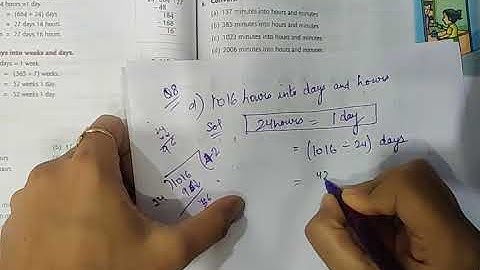 (684 ÷ 24) days
= 27 days 16 hours
24
48
184
168
16
days into weeks and days.
days = 1 week
= (365 ÷ 7) weeks
= 52 weeks 1 day
= 52 weeks 1 day.
(a) 137 minutes into hours and minutes
(b) 385 minutes into hours and minutes
(c) 1023 minutes into hours and minutes
(d) 2006 minutes into hours and minutes
Q8
d) 1016 hours into days and hours
Sol
24 hours = 1 day
= (1016 ÷ 24) days
= 42
1016
24